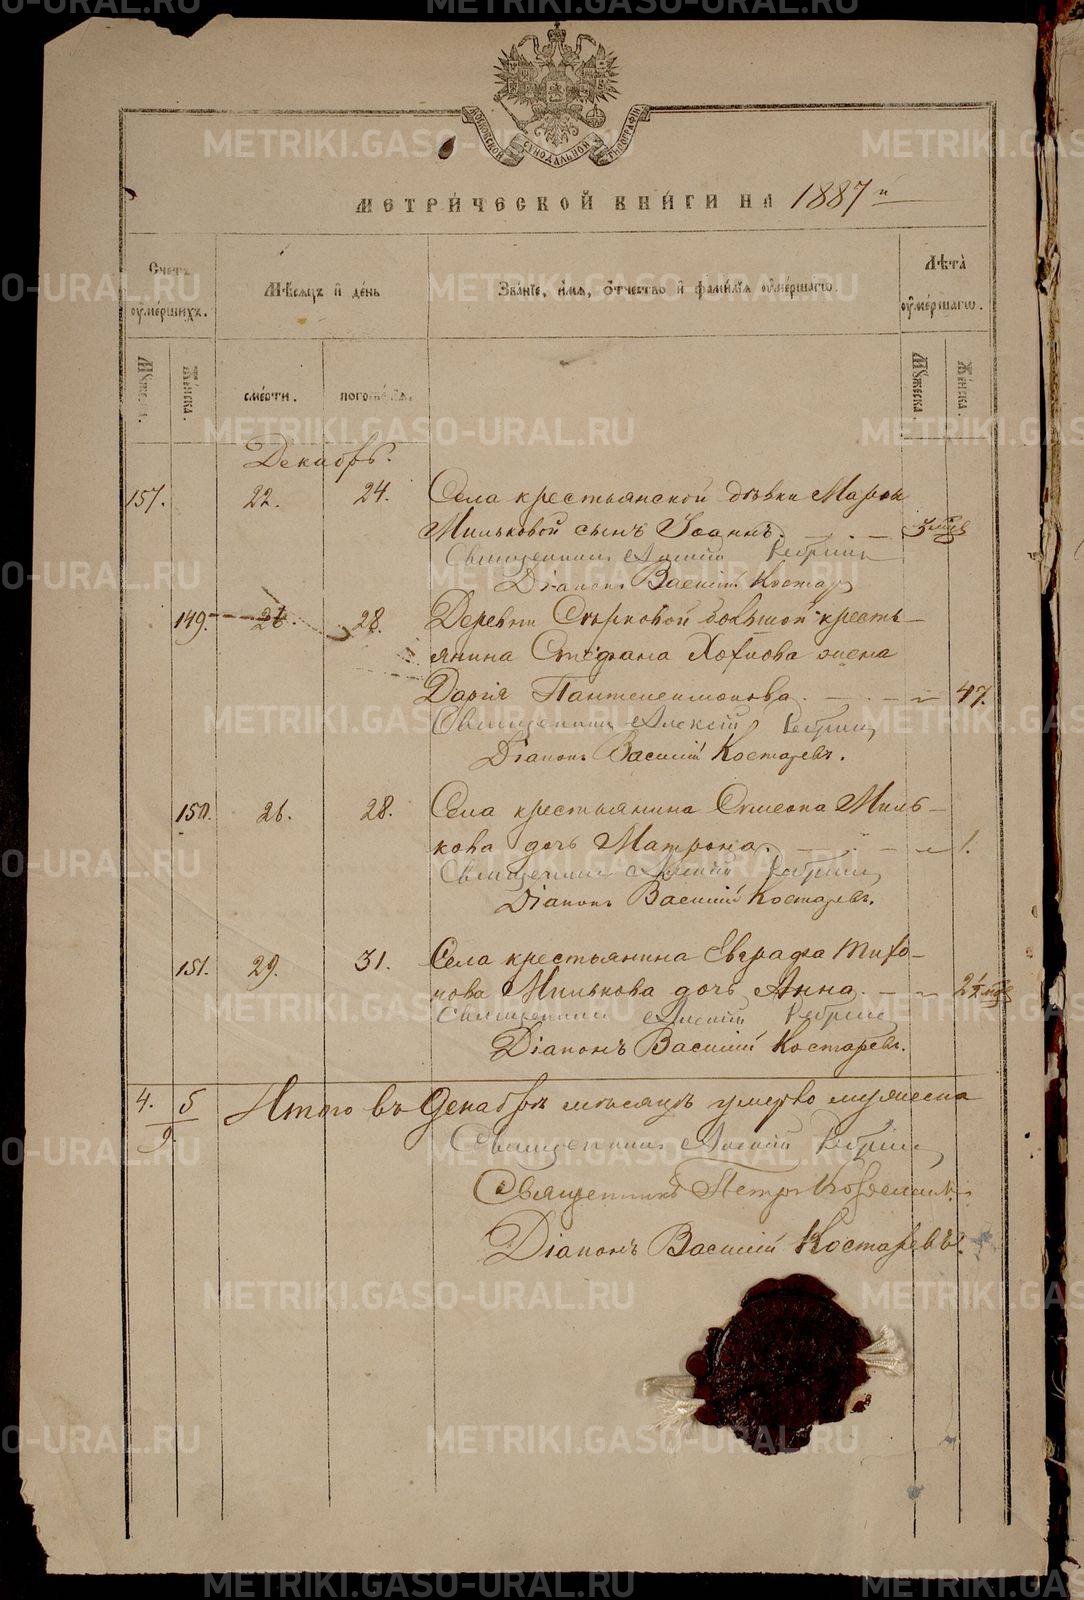 МОСКОВСКОЙ СѴНОДАЛЬНОЙ ТИПОГРАФІИ
МЕТРИ́ЧЕСКОЙ КНИ́ГИ НА 1887 й
Счетъ ᲂу҆ме́ршихъ.
Мѣсѧцъ и҆ де́нь
Зва́нїе, и҆́мѧ, ѻ҆́тчество и҆ фами́лїѧ ᲂу҆ме́ршагѡ.
Лѣта̀ ᲂу҆ме́ршагѡ.
Мꙋ́жеска.
Же́нска.
сме́рти.
погребе́нїѧ.
Мꙋ́жеска.
Же́нска.
Декабрь.
157. 22. 24. Села крестьянской дѣвки Марьи
Мильковой сынъ Іоаннъ. 3 мца
Священникъ Алексій
Діаконъ Василій Костарев
149. 26. 28. Деревни Сѣрковой большой кресть-
янина Стефана Хохлова жена
Дарія Пантелеимонова. 47.
Священникъ Алексій
Діаконъ Василій Костаревъ.
150. 26. 28. Села крестьянина Симеона Миль-
кова дочь Матрона. 1.
Священникъ Алексій
Діаконъ Василій Костаревъ.
151. 29. 31. Села крестьянина Евграфа Тихо-
нова Милькова дочь Анна. 2½ мца
Священникъ Алексій
Діаконъ Василій Костаревъ.
4. 5 Итого въ Декабрѣ мѣсяцѣ умерло мужеска
9.
Священникъ Алексій
Священникъ Петръ
Діаконъ Василій Костаревъ.
METRIKI.GASO-URAL.RU